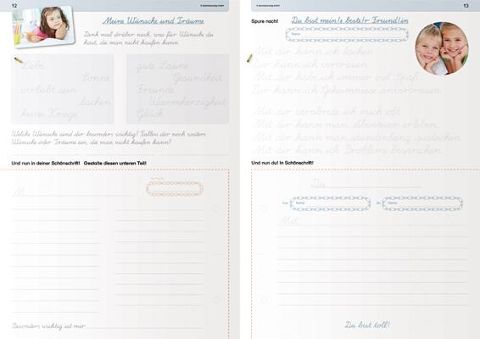 12
Meine Wünsche und Träume
Denk mal drüber nach, was für Wünsche du
hast, die man nicht kaufen kann!
Liebe
Sonne
verliebt sein
lachen
keine Kriege
gute Laune
Gesundheit
Freunde
Warmherzigkeit
Glück
Welche Wünsche sind dir besonders wichtig? Fallen dir noch weitere
Wünsche oder Träume ein, die man nicht kaufen kann?
Und nun in deiner Schönschrift! Gestalte diesen unteren Teil!
Besonders wichtig ist mir
13
Spure nach!
Du bist mein/e beste/r Freund/in
Name
Mit dir kann ich lachen
Mit dir kann ich
Mit dir habe ich immer viel Spaß
Dir kann ich Geheimnisse anvertrauen
Mit dir
Mit dir kann man Abenteuer erleben
Mit dir kann man
Mit dir kann ich Probleme besprechen
Und nun du! In Schönschrift!
Du
Name
Name
Mit
Du bist toll!